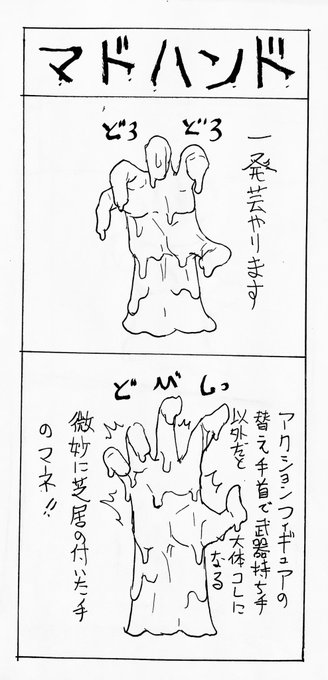 マドハンド
どろ
どろ
一発芸やります
どべしっ
アクションフィギュアの
替え手首で武器持ち手
以外だと
大体コレに
なる
微妙に芝居の付いた手
のマネ!!